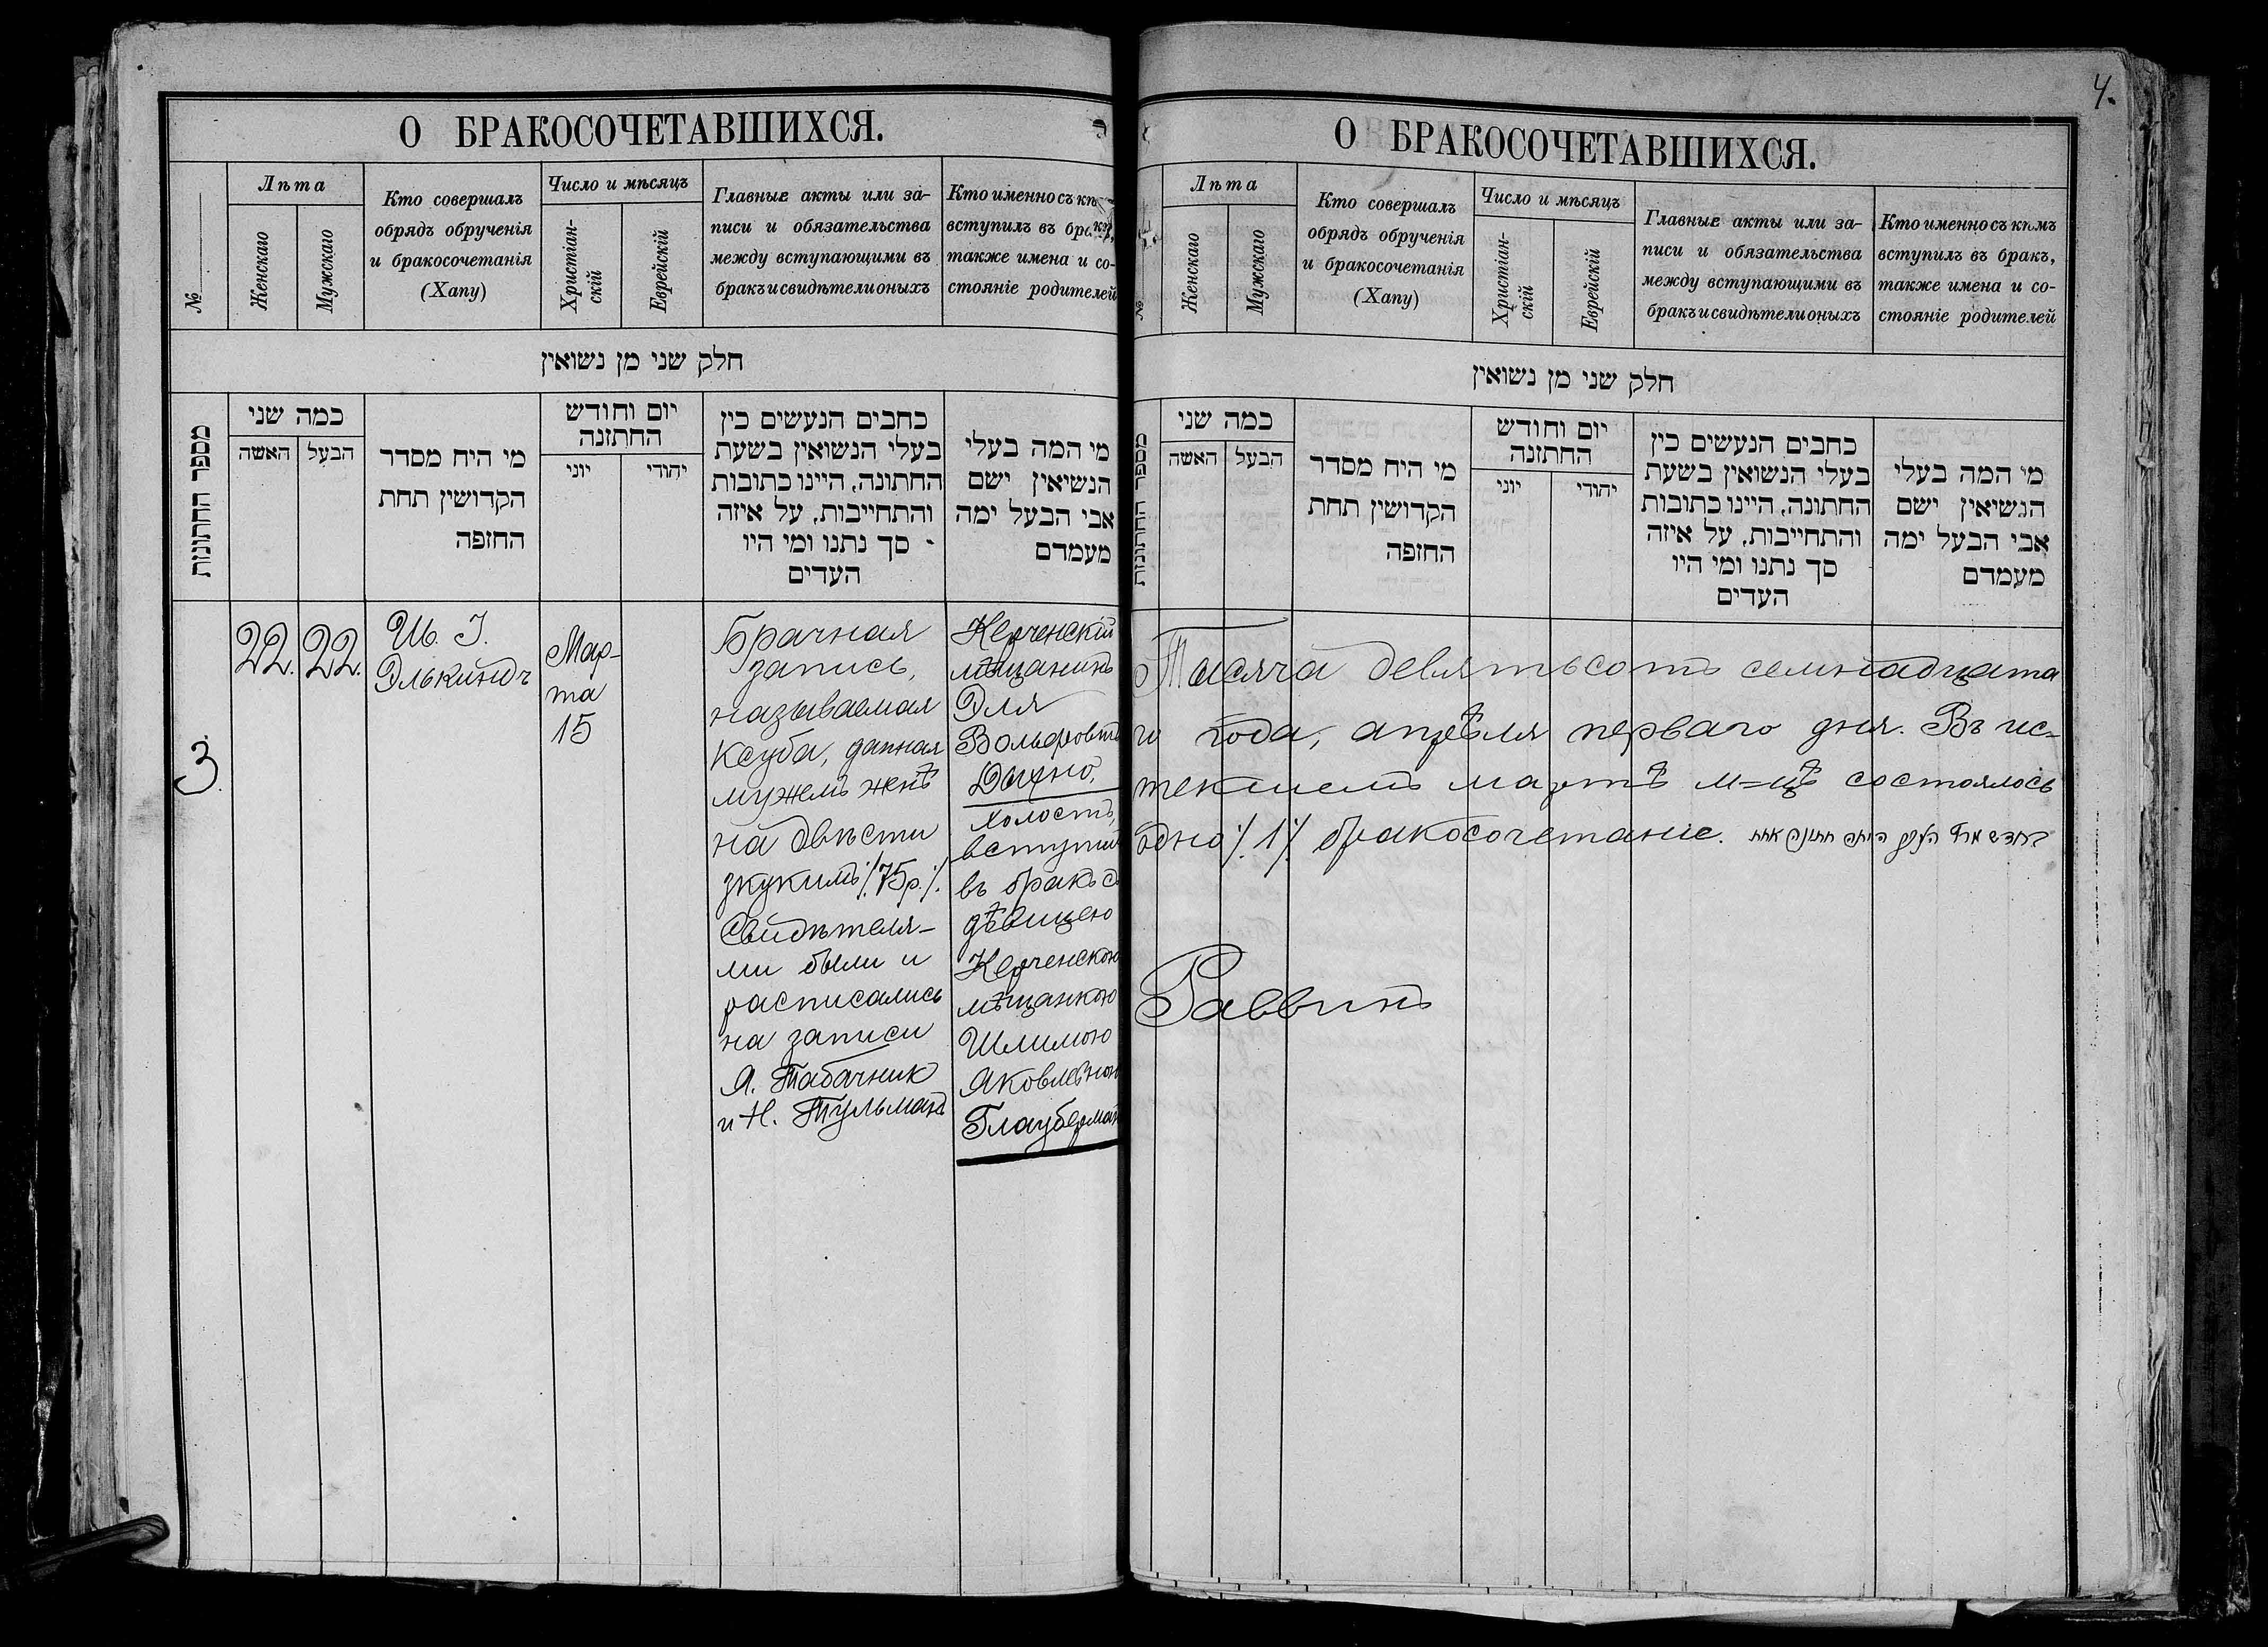 О БРАКОСОЧЕТАВШИХСЯ.
№
Лѣта
Женскаго
Мужскаго
Кто совершалъ
обрядъ обрученія
и бракосочетанія
(Хапу)
Число и мѣсяцъ
Христіан-
скій
Еврейскій
Главные акты или за-
писи и обязательства
между вступающими въ
бракъ и свидѣтели оныхъ
Кто именно съ
вступилъ въ бракъ,
также имена и со-
стояніе родителей
חלק שני מן נשואין
מספר החתונות
כמה שני
האשה
הבעל
מי היח מסדר
הקדושין תחת
החופה
יום וחודש
החתונה
יוני
יהודי
כחבים הנעשים כין
בעלי הנשואין בשעת
החתונה, היינו כתובות
והתחייבות, על איזה
סך נתנו ומי היו
העדים
מי המה בעלי
הנשיאין ישם
אבי הבעל ימה
מעמדם
3.
22.
22.
Ш. I.
Элькиндъ
Мар-
та
15
Брачная
запись,
называемая
ксуба, данная
мужемъ женѣ
на двѣсти
зкукимъ ./.75р./.
Свидѣтеля-
ми были и
расписались
на записи
Я. Табачник
и Н. Тульман
Керченскій
мѣщанинъ
Эля
Вольфовъ
Дыхно,
холостъ,
вступил
въ бракъ съ
дѣвицею
Керченскою
мѣщанкою
Шлимою
Яковлевною
Глауберман
4.
О БРАКОСОЧЕТАВШИХСЯ.
№
Лѣта
Женскаго
Мужскаго
Кто совершалъ
обрядъ обрученія
и бракосочетанія
(Хапу)
Число и мѣсяцъ
Христіан-
скій
Еврейскій
Главные акты или за-
писи и обязательства
между вступающими въ
бракъ и свидѣтели оныхъ
Кто именно съ кѣмъ
вступилъ въ бракъ,
также имена и со-
стояніе родителей
חלק שני מן נשואין
מספר החתונות
כמה שני
האשה
הבעל
מי היח מסדר
הקדושין תחת
החופה
יום וחודש
החתונה
יוני
יהודי
כחבים הנעשים כין
בעלי הנשואין בשעת
החתונה, היינו כתובות
והתחייבות, על איזה
סך נתנו ומי היו
העדים
מי המה בעלי
הנשיאין ישם
אבי הבעל ימה
מעמדם
Тысяча девятьсотъ семнадцата
го года, апрѣля перваго дня. Въ ис-
текшемъ мартѣ м-цѣ состоялось
одно ./.1/. бракосочетаніе.
Раввинъ